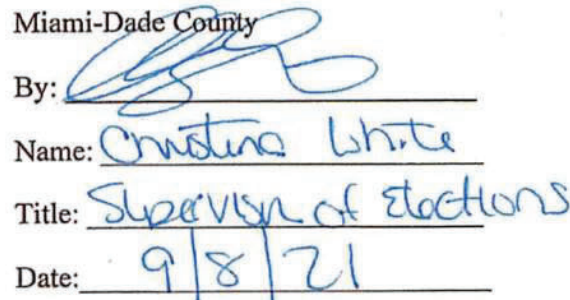 Miami-Dade County
By:
Name: Christina White
Title: Supervisor of Elections
Date: 9/8/21